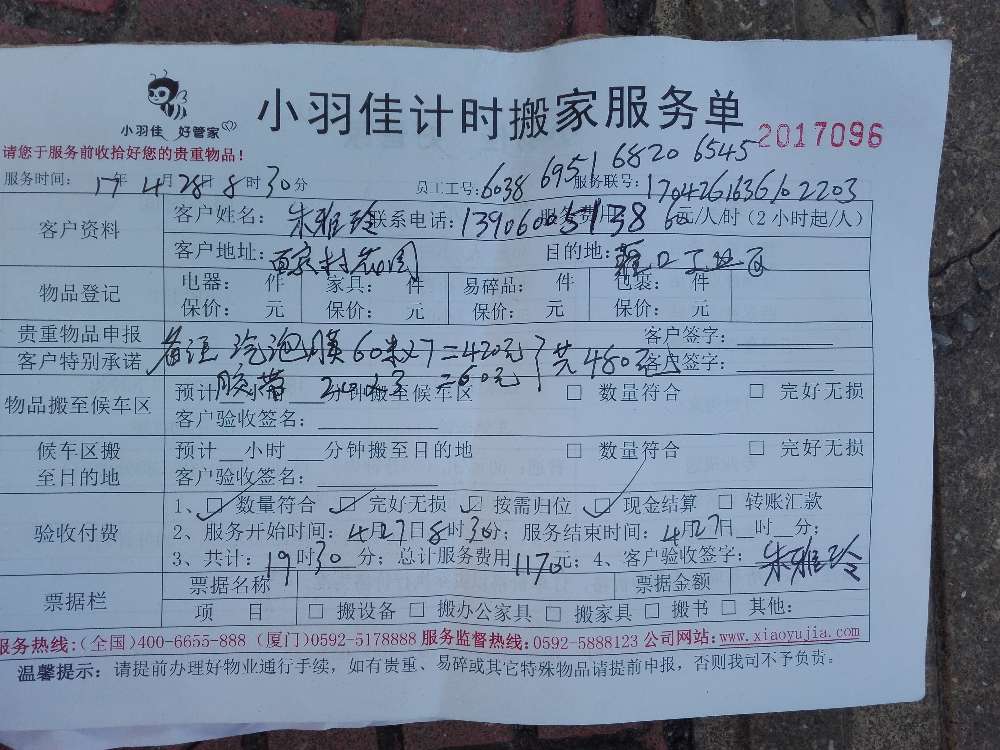 小羽佳 好管家
小羽佳计时搬家服务单
2017096
请您于服务前收拾好您的贵重物品！
服务时间： 17年 4月28日 8时30分 员工工号：6038 6951 6820 6545 服务联号：
客户资料
客户姓名：朱雅玲 联系电话： 服务费用 60元/人/时（2小时起/人）
客户地址： 目的地：
物品登记
电器： 件 家具： 件 易碎品： 件 包裹： 件
保价： 元 保价： 元 保价： 元 保价： 元
贵重物品申报 客户签字：
客户特别承诺 客户签字：
备注 汽泡膜60米x7=420元 共480元
胶带 =60元
物品搬至候车区
预计 小时 分钟搬至候车区 □ 数量符合 □ 完好无损
客户验收签名：
候车区搬至目的地
预计 小时 分钟搬至目的地 □ 数量符合 □ 完好无损
客户验收签名：
验收付费
1、☑ 数量符合 ☑ 完好无损 ☑ 按需归位 ☑ 现金结算 □ 转账汇款
2、服务开始时间：4月27日8时30分；服务结束时间：4月27日 时 分；
3、共计：19时30分；总计服务费用1170元；4、客户验收签字：朱雅玲
票据栏
票据名称 票据金额
项 目 □ 搬设备 □ 搬办公家具 □ 搬家具 □ 搬书 □ 其他：
服务热线：(全国)400-6655-888 (厦门)0592-5178888 服务监督热线：0592-5888123 公司网站：www.xiaoyujia.com
温馨提示：请提前办理好物业通行手续，如有贵重、易碎或其它特殊物品请提前申报，否则我司不予负责。